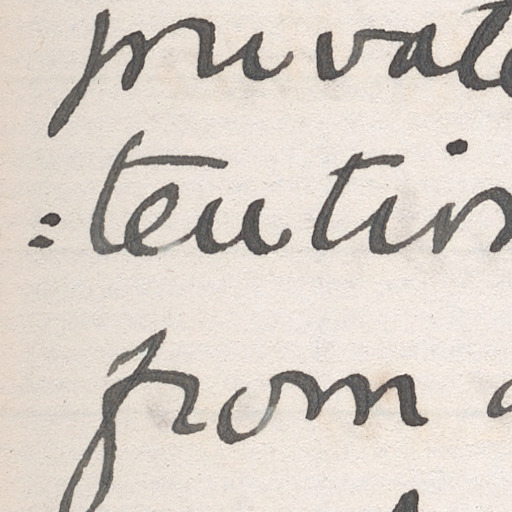 private
:tention
from